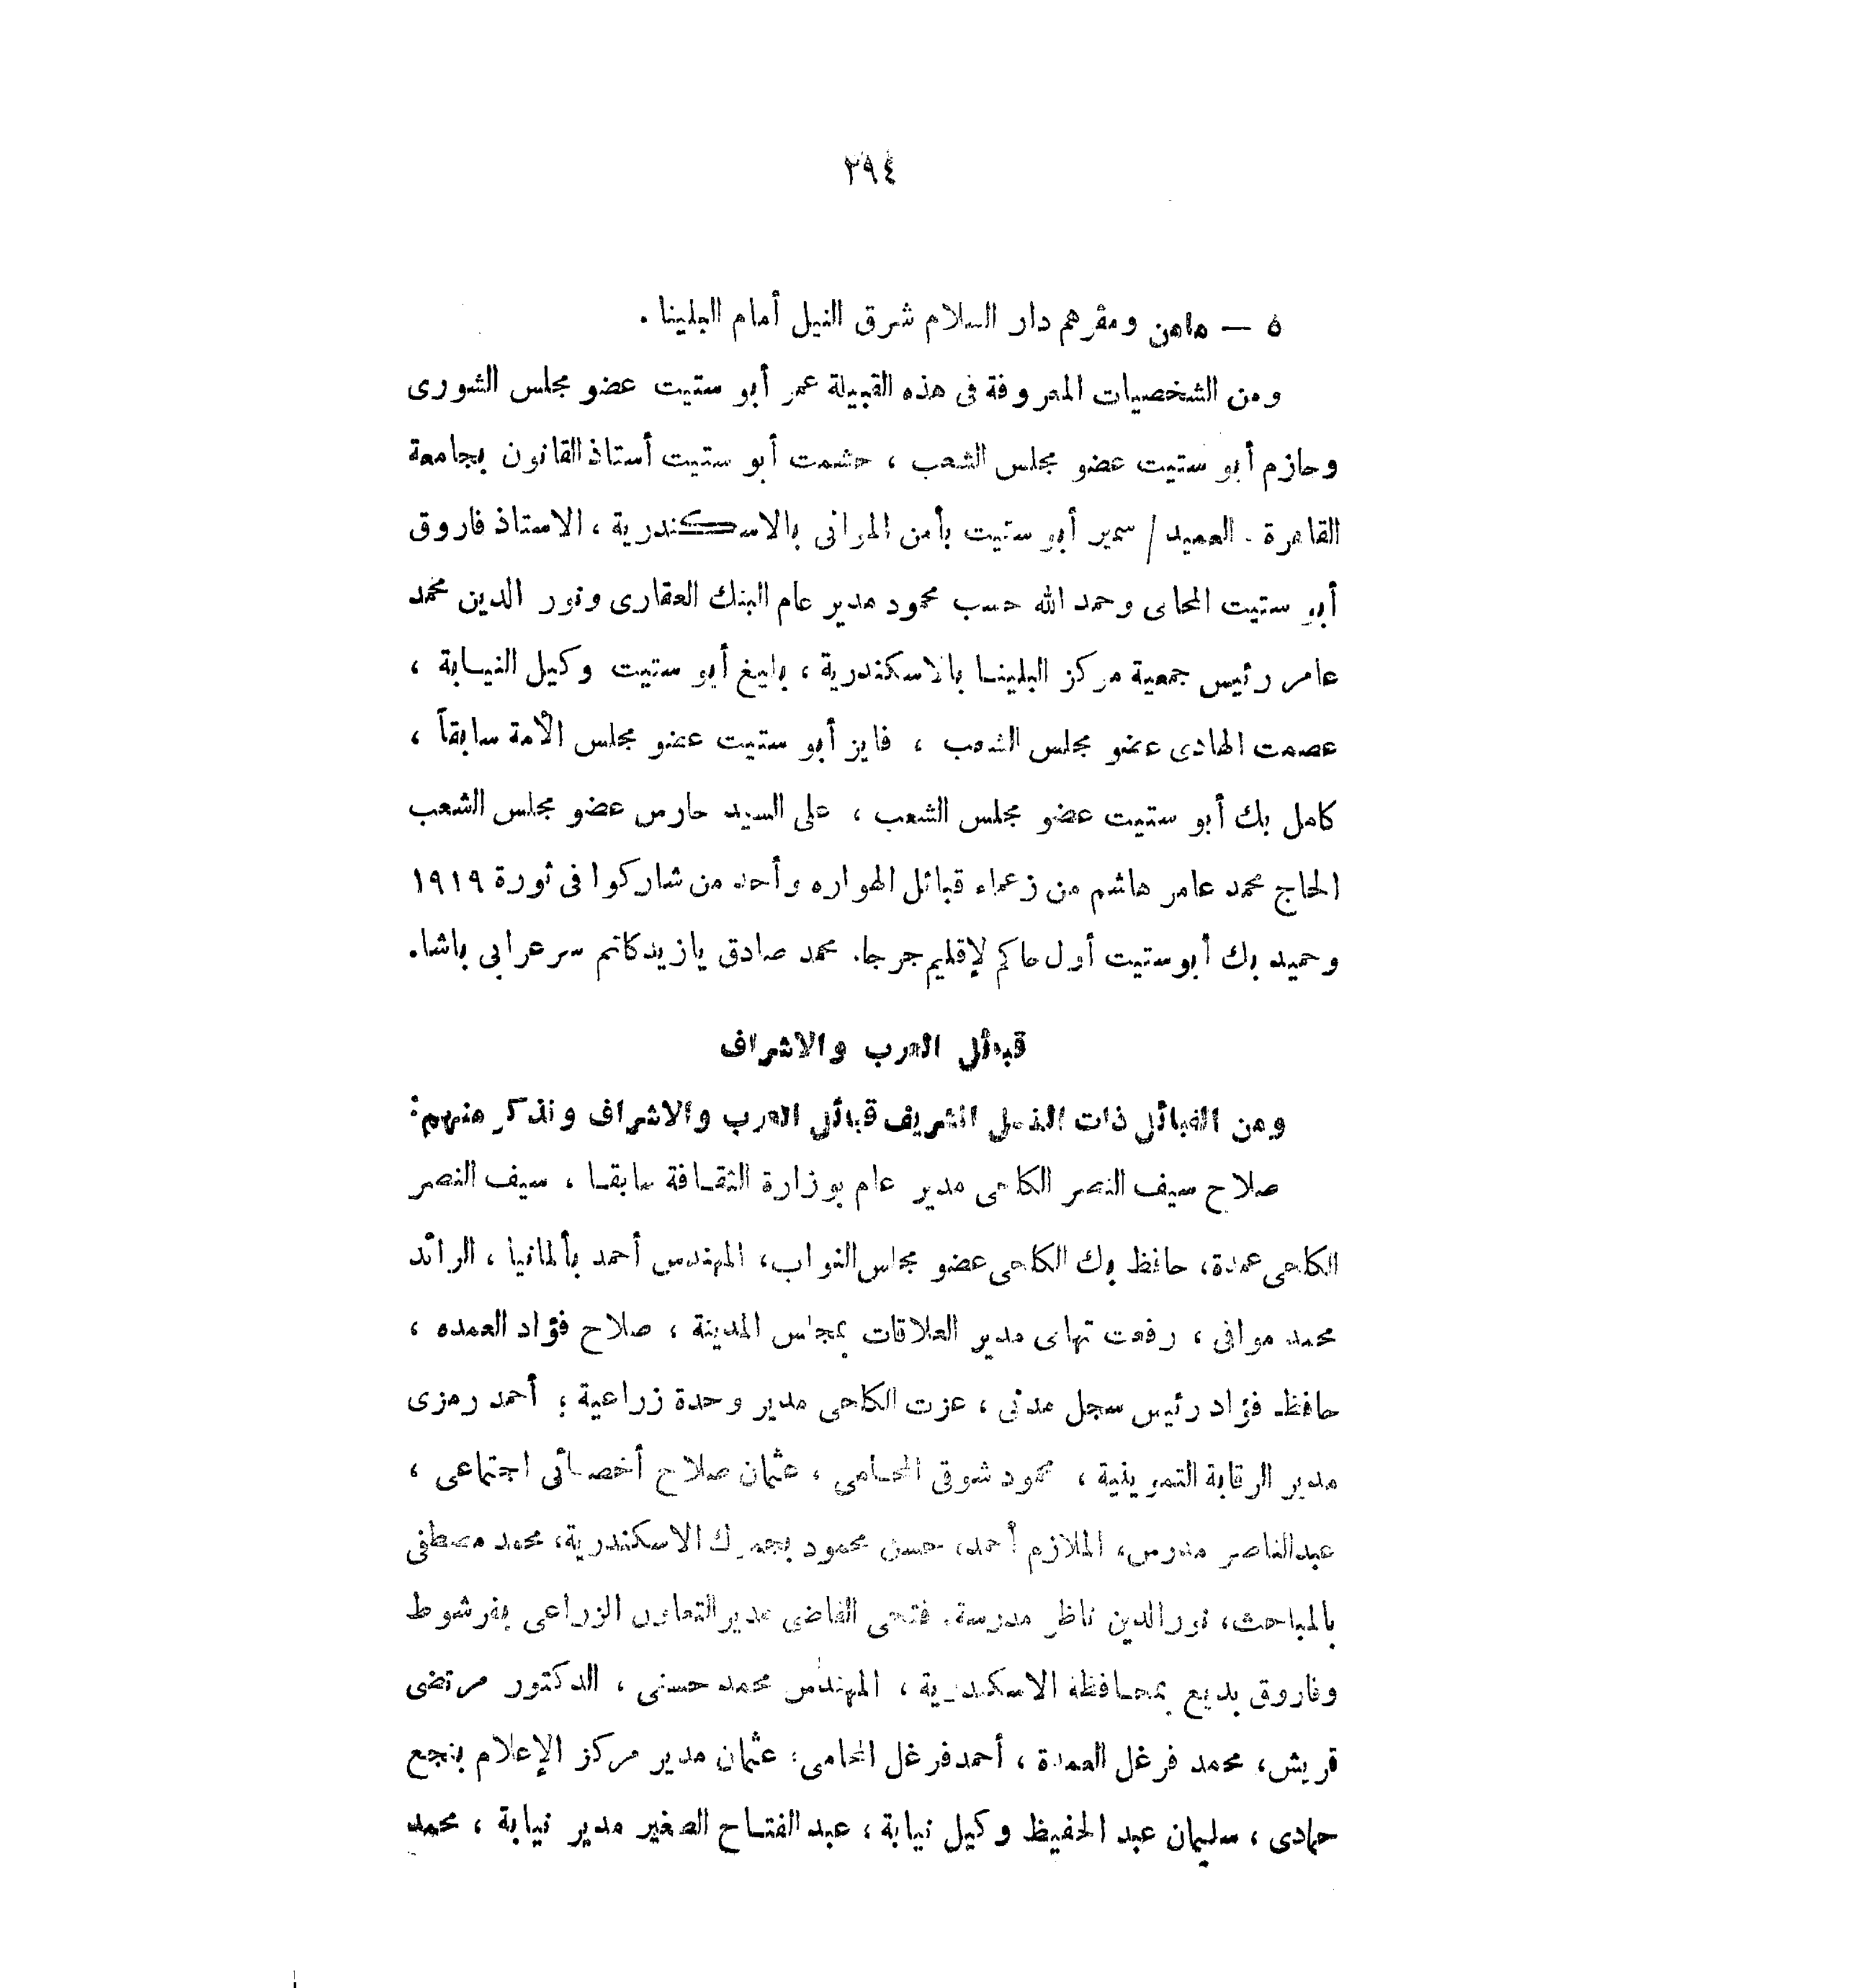 ٢٩٤
٥ — مامن ومقرهم دار السلام شرق النيل أمام البلينا .
ومن الشخصيات المعروفة فى هذه القبيلة عمر أبو ستيت عضو مجلس الشورى
وحازم أبو ستيت عضو مجلس الشعب ، حشمت أبو ستيت أستاذ القانون بجامعة
القاهرة . العميد / سمير أبو ستيت بأمن الموانى بالاسكندرية ، الاستاذ فاروق
أبو ستيت المحامى وحمد الله حسب محمود مدير عام البنك العقارى ونور الدين محمد
عامر رئيس جمعية مركز البلينا بالاسكندرية ، بليغ أبو ستيت وكيل النيابة ،
عصمت الهادى عضو مجلس الشعب ، فايز أبو ستيت عضو مجلس الأمة سابقاً ،
كامل بك أبو ستيت عضو مجلس الشعب ، على السيد حارص عضو مجلس الشعب
الحاج محمد عامر هاشم من زعماء قبائل الهواره وأحد من شاركوا فى ثورة ١٩١٩
وحميد بك أبو ستيت أول حاكم لإقليم جرجا. محمد صادق يازيد كاتم سر عرابى باشا.
قبائل العرب والاشراف
ومن القبائل ذات الأصل الشريف قبائل العرب والاشراف ونذكر منهم :
صلاح سيف النصر الكلحى مدير عام بوزارة الثقافة سابقا ، سيف النصر
الكلحى عمدة، حافظ بك الكلحى عضو مجلس النواب، المهندس أحمد بألمانيا ، الرائد
محمد موافى ، رفعت تهامى مدير العلاقات بمجلس المدينة ، صلاح فؤاد العمده ،
حافظ فؤاد رئيس سجل مدنى ، عزت الكلحى مدير وحدة زراعية ؛ أحمد رمزى
مدير الرقابة التموينية ، محمود شوقى المحامى ، عثمان صلاح أخصائى اجتماعى ،
عبدالناصر مدرس، الملازم أحمد، حسن محمود بجمرك الاسكندرية، محمد مصطفى
بالمباحث، نور الدين ناظر مدرسة. فتحى القاضى مدير التعاون الزراعى بفرشوط
وفاروق بديع بمحافظة الاسكندرية ، المهندس محمد حسنى ، الدكتور مرتضى
قريش، محمد فرغل العمدة ، أحمد فرغل المحامى ؛ عثمان مدير مركز الإعلام بنجع
حمادى ، سليمان عبد الحفيظ وكيل نيابة ، عبد الفتاح الصغير مدير نيابة ، محمد